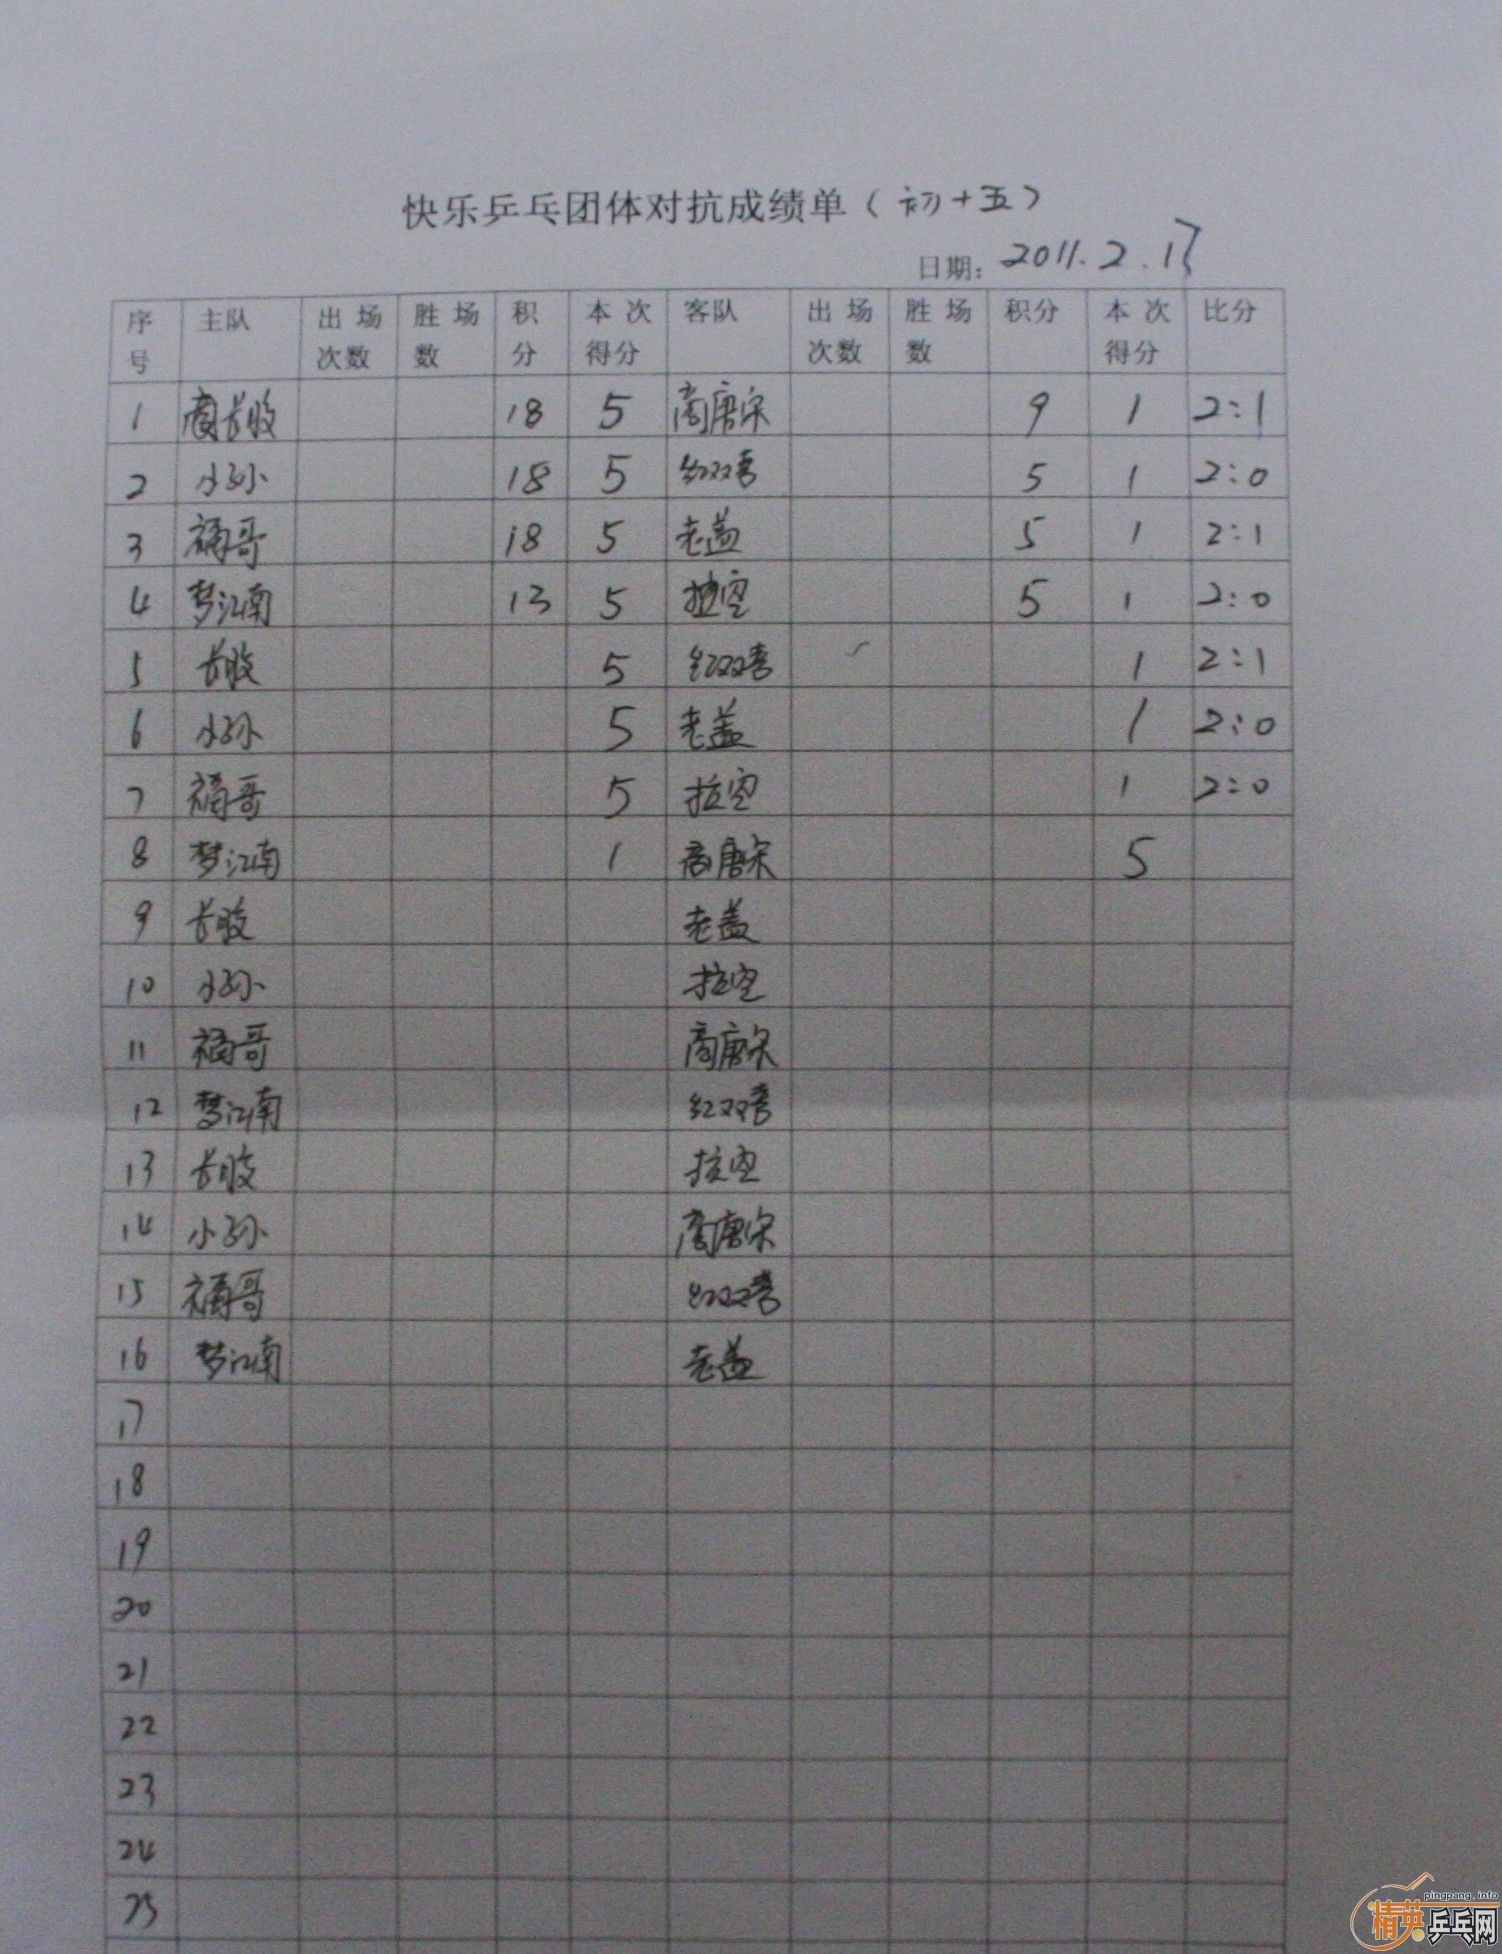 快乐乒乓团体对抗成绩单（初十五）
日期：2011.2.17
序号 主队 出场次数 胜场数 积分 本次得分 客队 出场次数 胜场数 积分 本次得分 比分
1 18 5 商唐宋 9 1 2:1
2 小孙 18 5 红双喜 5 1 2:0
3 福哥 18 5 老盖 5 1 2:1
4 梦江南 13 5 拉空 5 1 2:0
5 长胶 5 红双喜 1 2:1
6 小孙 5 老盖 1 2:0
7 福哥 5 拉空 1 2:0
8 梦江南 1 商唐宋 5
9 长胶 老盖
10 小孙 拉空
11 福哥 商唐宋
12 梦江南 红双喜
13 长胶 拉空
14 小孙 商唐宋
15 福哥 红双喜
16 梦江南 老盖
17
18
19
20
21
22
23
24
25
pingpang.info
精英乒乓网